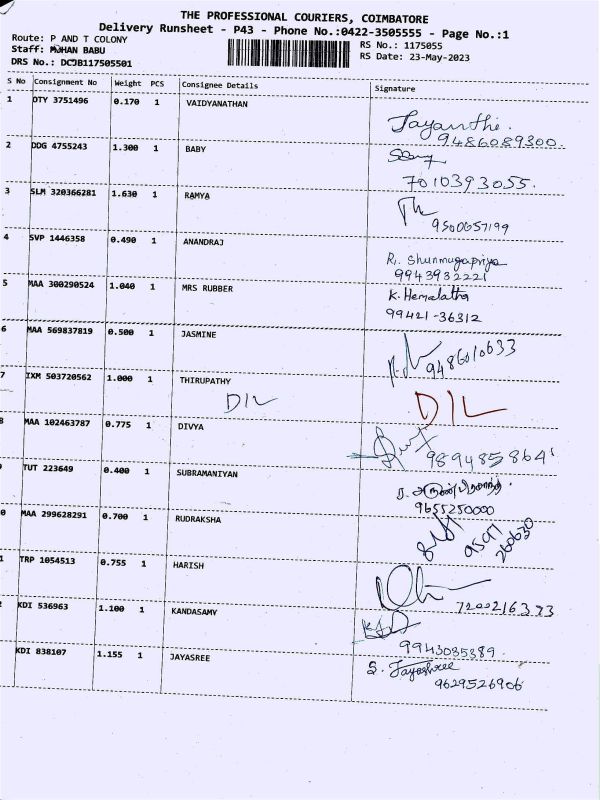 THE PROFESSIONAL COURIERS, COIMBATORE
Delivery Runsheet - P43 - Phone No.:0422-3505555 - Page No.:1
Route: P AND T COLONY
Staff: MOHAN BABU
DRS No.: DCJB117505501
RS No.: 1175055
RS Date: 23-May-2023
S No Consignment No Weight PCS Consignee Details Signature
1 DTY 3751496 0.170 1 VAIDYANATHAN Jayanthi.
9486089300.
2 DDG 4755243 1.300 1 BABY
7010393055.
3 SLM 320366281 1.630 1 RAMYA
9500657199
4 SVP 1446358 0.490 1 ANANDRAJ R. Shunmugapriya
9943932221
5 MAA 300290524 1.040 1 MRS RUBBER K. Hemalatha
99421-36312
6 MAA 569837819 0.500 1 JASMINE
9486010633
7 IXM 503720562 1.000 1 THIRUPATHY
D I L D I L
8 MAA 102463787 0.775 1 DIVYA
989485864
9 TUT 223649 0.400 1 SUBRAMANIYAN
9655250000
0 MAA 299628291 0.700 1 RUDRAKSHA
9597
260630
1 TRP 1054513 0.755 1 HARISH
7200216373
2 KDI 536963 1.100 1 KANDASAMY
9943035389.
KDI 838107 1.155 1 JAYASREE S. Jayashree
9629526906